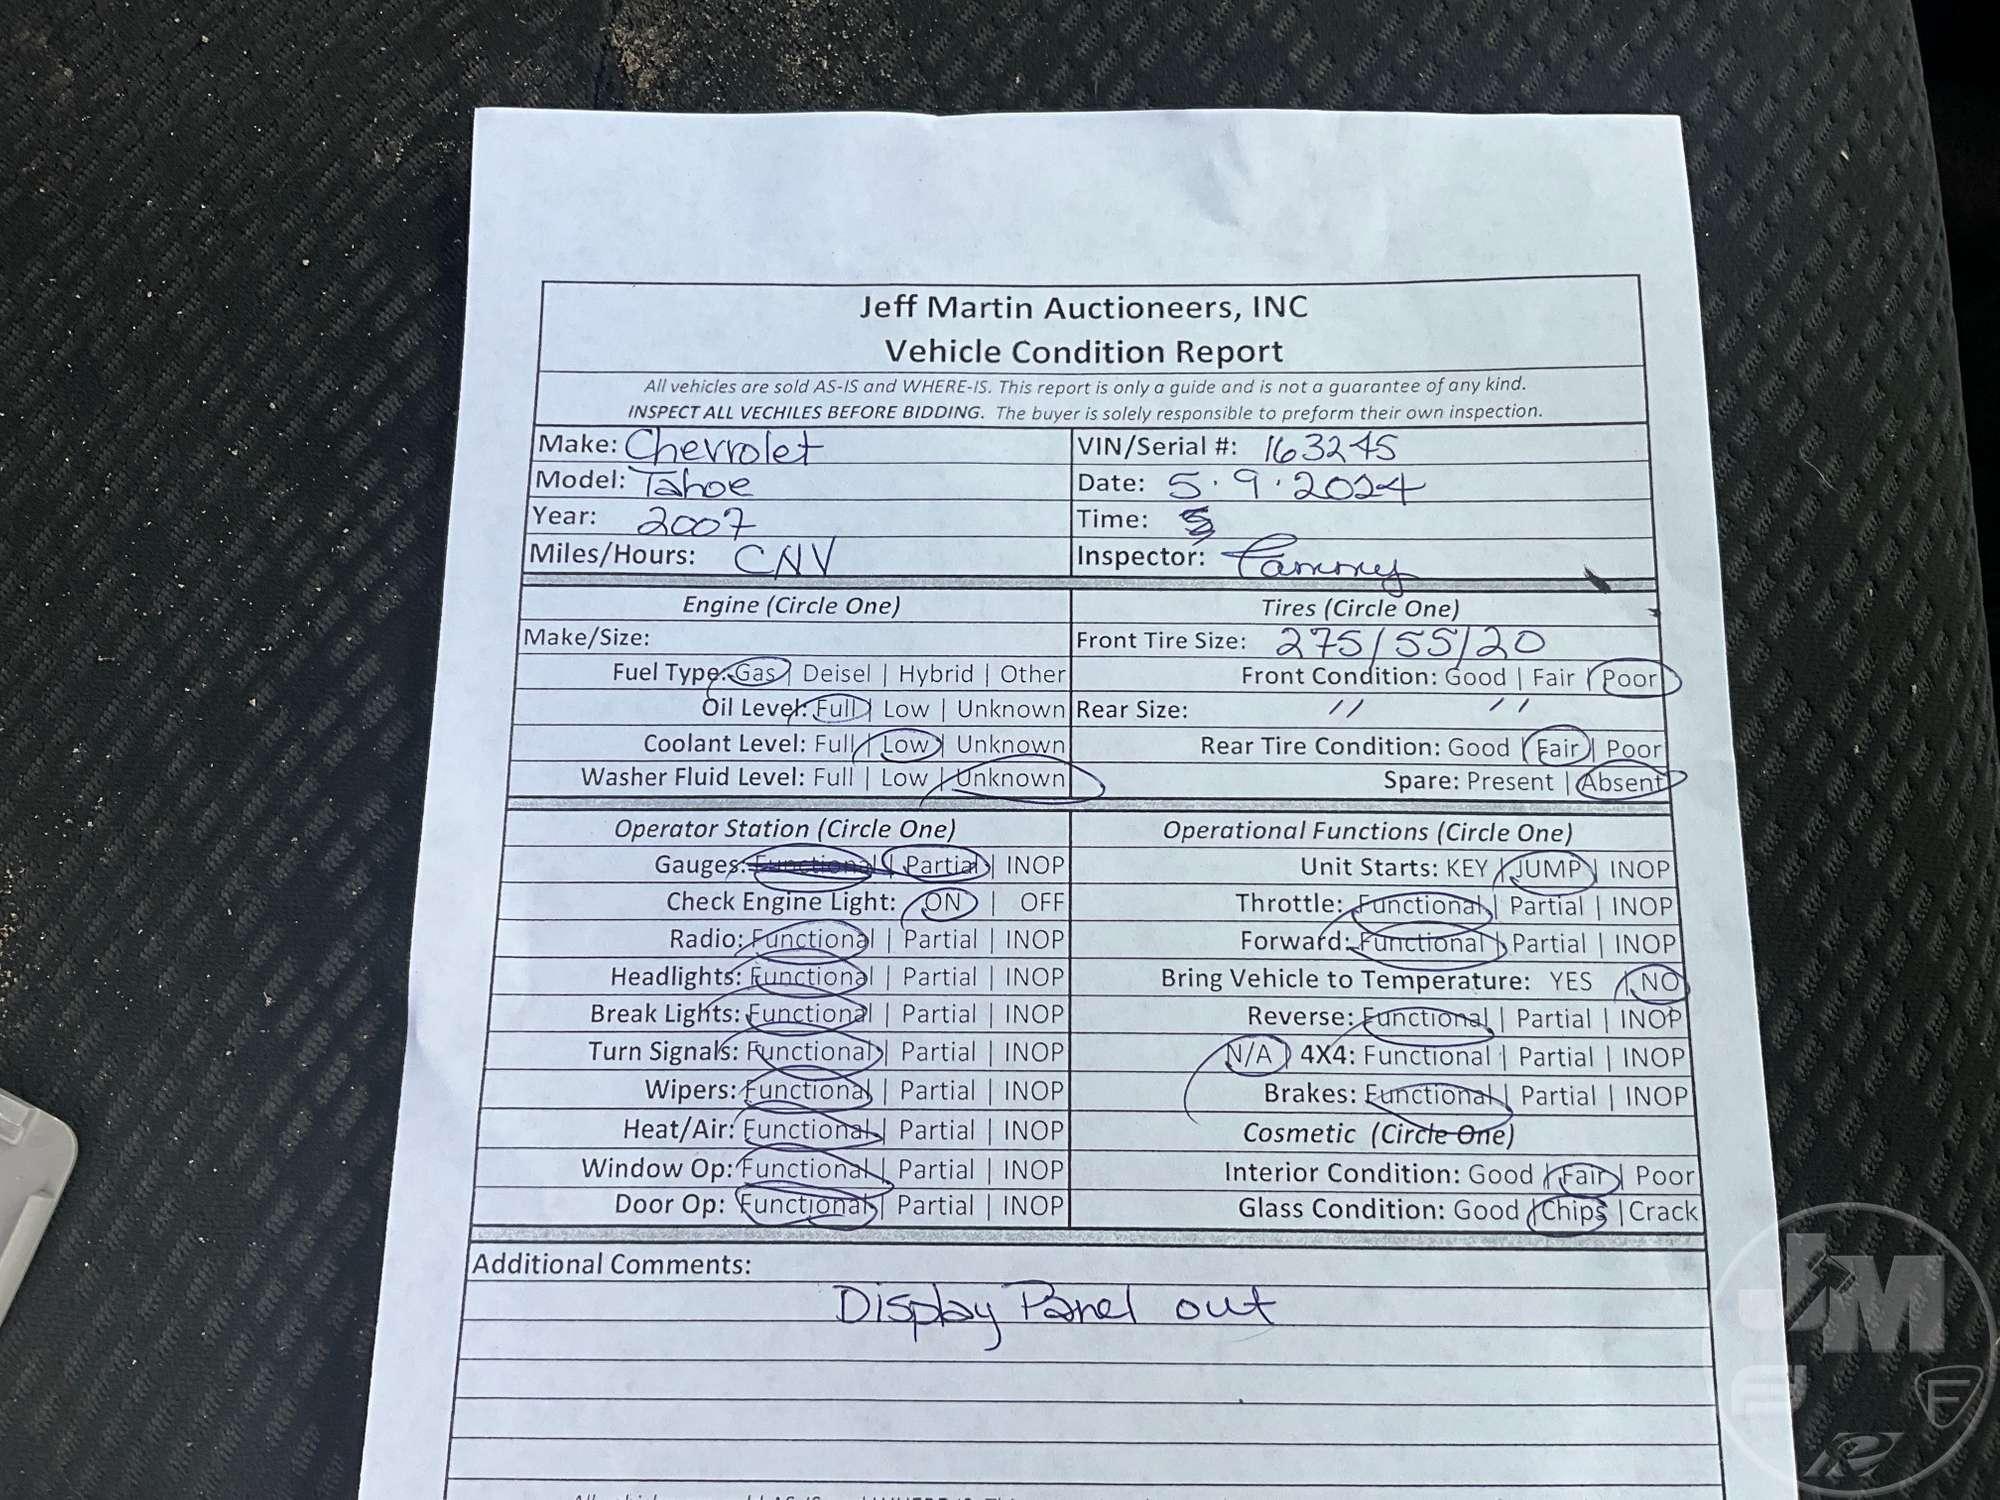 Jeff Martin Auctioneers, INC
Vehicle Condition Report
All vehicles are sold AS-IS and WHERE-IS. This report is only a guide and is not a guarantee of any kind.
INSPECT ALL VECHILES BEFORE BIDDING. The buyer is solely responsible to preform their own inspection.
Make: Chevrolet
VIN/Serial #: 163245
Model: Tahoe
Date: 5.9.2024
Year: 2007
Time:
Miles/Hours: CNV
Inspector: Tammy
Engine (Circle One)
Tires (Circle One)
Make/Size:
Front Tire Size: 275/55/20
Fuel Type: Gas | Deisel | Hybrid | Other
Front Condition: Good | Fair | Poor
Oil Level: Full | Low | Unknown
Rear Size: " "
Coolant Level: Full | Low | Unknown
Rear Tire Condition: Good | Fair | Poor
Washer Fluid Level: Full | Low | Unknown
Spare: Present | Absent
Operator Station (Circle One)
Operational Functions (Circle One)
Gauges: Functional | Partial | INOP
Unit Starts: KEY | JUMP | INOP
Check Engine Light: ON | OFF
Throttle: Functional | Partial | INOP
Radio: Functional | Partial | INOP
Forward: Functional | Partial | INOP
Headlights: Functional | Partial | INOP
Bring Vehicle to Temperature: YES | NO
Break Lights: Functional | Partial | INOP
Reverse: Functional | Partial | INOP
Turn Signals: Functional | Partial | INOP
N/A | 4X4: Functional | Partial | INOP
Wipers: Functional | Partial | INOP
Brakes: Functional | Partial | INOP
Heat/Air: Functional | Partial | INOP
Cosmetic (Circle One)
Window Op: Functional | Partial | INOP
Interior Condition: Good | Fair | Poor
Door Op: Functional | Partial | INOP
Glass Condition: Good | Chips | Crack
Additional Comments:
Display Panel out
JM
F